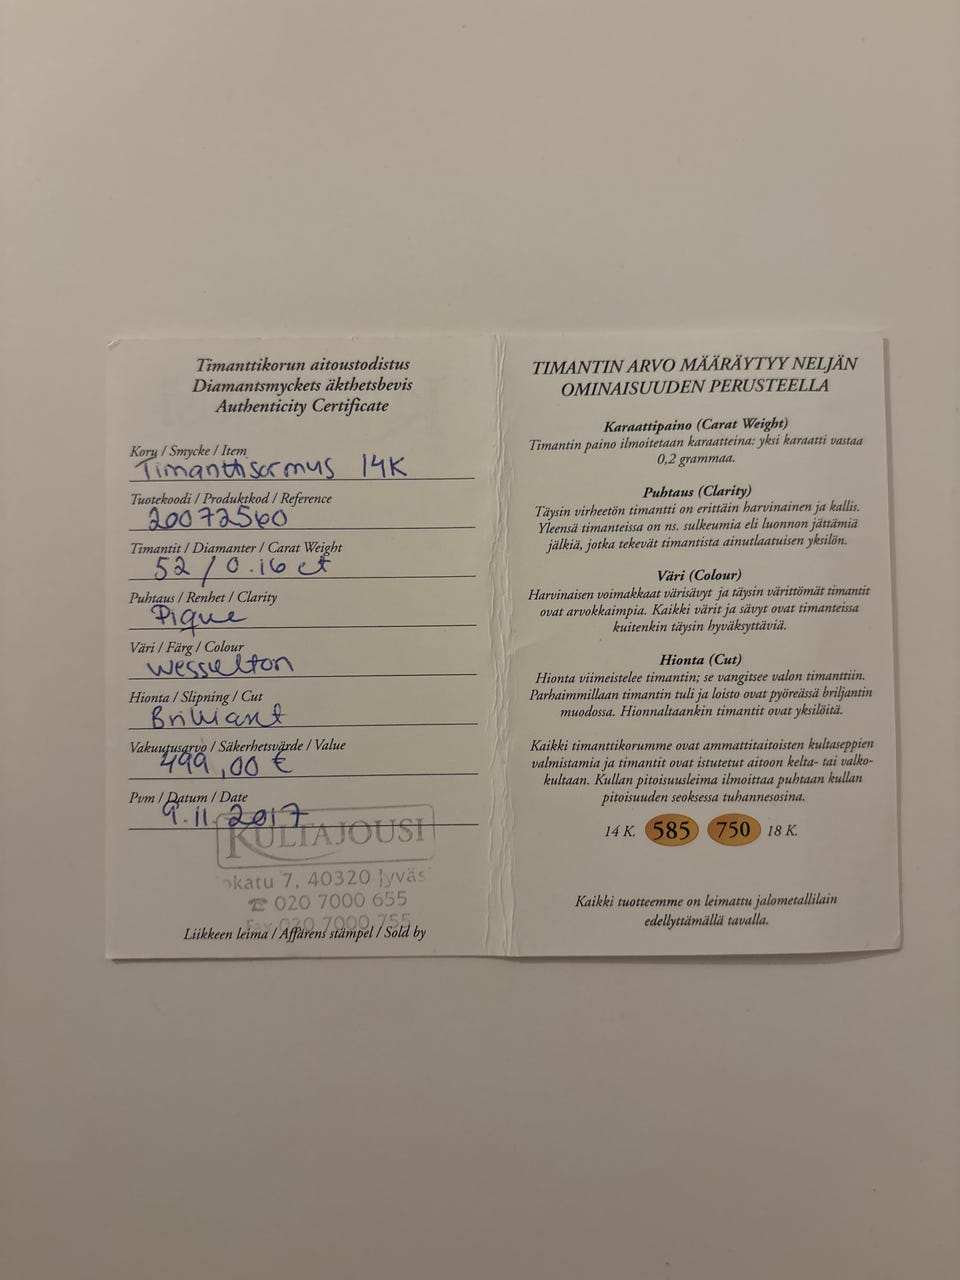 Timanttikorun aitoustodistus
Diamantsmyckets äkthetsbevis
Authenticity Certificate
Koru / Smycke / Item
Timanttisormus 14K
Tuotekoodi / Produktkod / Reference
20072560
Timantit / Diamanter / Carat Weight
52 / 0.16 ct
Puhtaus / Renhet / Clarity
Pique
Väri / Färg / Colour
Wesselton
Hionta / Slipning / Cut
Brilliant
Vakuutusarvo / Säkerhetsvärde / Value
499,00 €
Pvm / Datum / Date
9.11.2017
KULTAJOUSI
okatu 7, 40320 Jyväs
☎ 020 7000 655
Fax 020 7000 755
Liikkeen leima / Affärens stämpel / Sold by
TIMANTIN ARVO MÄÄRÄYTYY NELJÄN
OMINAISUUDEN PERUSTEELLA
Karaattipaino (Carat Weight)
Timantin paino ilmoitetaan karaatteina: yksi karaatti vastaa
0,2 grammaa.
Puhtaus (Clarity)
Täysin virheetön timantti on erittäin harvinainen ja kallis.
Yleensä timanteissa on ns. sulkeumia eli luonnon jättämiä
jälkiä, jotka tekevät timantista ainutlaatuisen yksilön.
Väri (Colour)
Harvinaisen voimakkaat värisävyt ja täysin värittömät timantit
ovat arvokkaimpia. Kaikki värit ja sävyt ovat timanteissa
kuitenkin täysin hyväksyttäviä.
Hionta (Cut)
Hionta viimeistelee timantin; se vangitsee valon timanttiin.
Parhaimmillaan timantin tuli ja loisto ovat pyöreässä briljantin
muodossa. Hionnaltaankin timantit ovat yksilöitä.
Kaikki timanttikorumme ovat ammattitaitoisten kultaseppien
valmistamia ja timantit ovat istutetut aitoon kelta- tai valko-
kultaan. Kullan pitoisuusleima ilmoittaa puhtaan kullan
pitoisuuden seoksessa tuhannesosina.
14 K. 585 750 18 K.
Kaikki tuotteemme on leimattu jalometallilain
edellyttämällä tavalla.